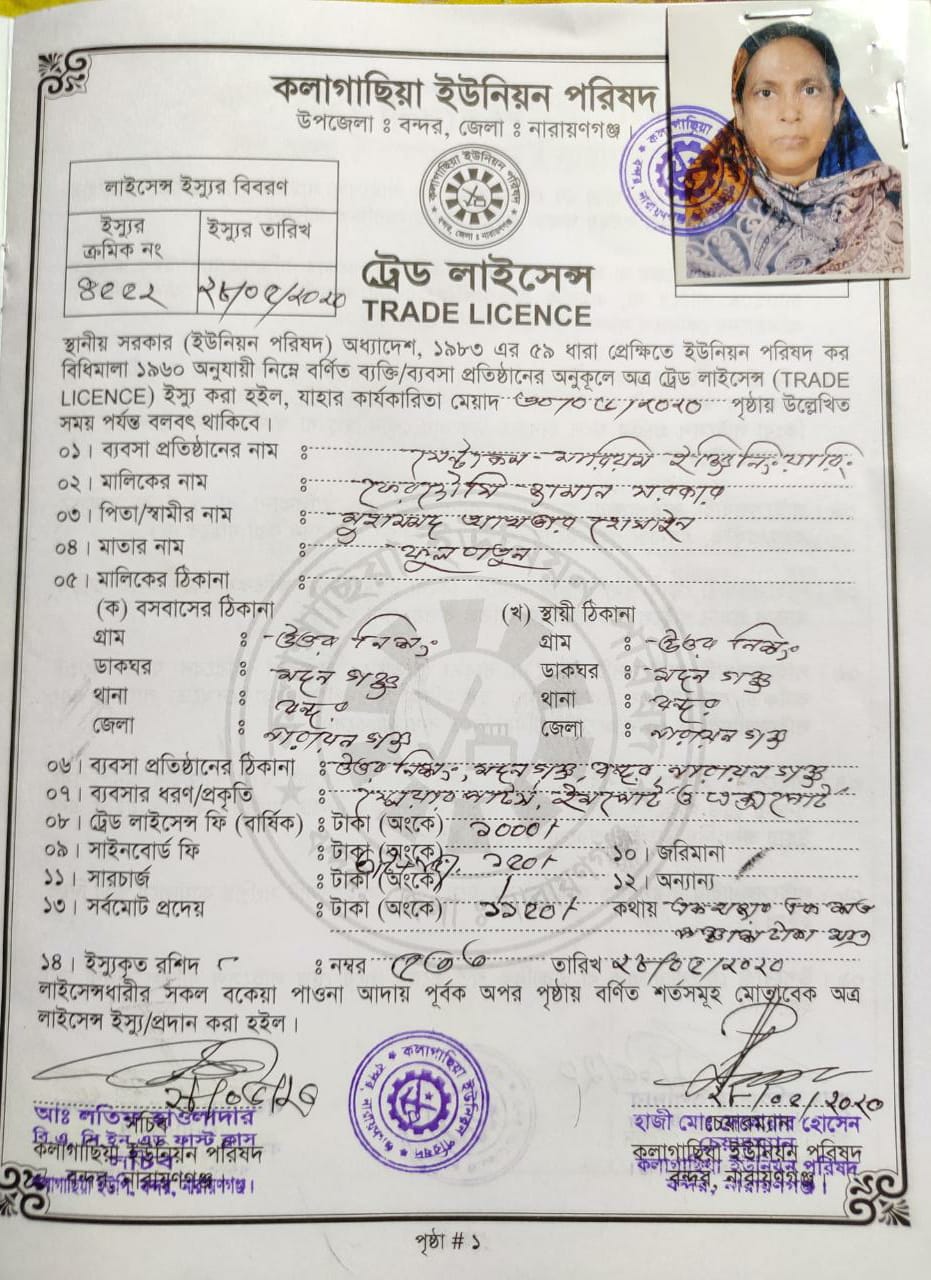 কলাগাছিয়া ইউনিয়ন পরিষদ
উপজেলা ঃ বন্দর, জেলা ঃ নারায়ণগঞ্জ।
লাইসেন্স ইস্যুর বিবরণ
ইস্যুর ক্রমিক নং
ইস্যুর তারিখ
২৮/০৫/২০২০
ট্রেড লাইসেন্স
TRADE LICENCE
স্থানীয় সরকার (ইউনিয়ন পরিষদ) অধ্যাদেশ, ১৯৮৩ এর ৫৯ ধারা প্রেক্ষিতে ইউনিয়ন পরিষদ কর
বিধিমালা ১৯৬০ অনুযায়ী নিম্নে বর্ণিত ব্যক্তি/ব্যবসা প্রতিষ্ঠানের অনুকূলে অত্র ট্রেড লাইসেন্স (TRADE
LICENCE) ইস্যু করা হইল, যাহার কার্যকারিতা মেয়াদ পৃষ্ঠায় উল্লেখিত
সময় পর্যন্ত বলবৎ থাকিবে।
০১। ব্যবসা প্রতিষ্ঠানের নাম ঃ
০২। মালিকের নাম ঃ ফেরদৌসি জামান সরকার
০৩। পিতা/স্বামীর নাম ঃ মুহাম্মদ আখতার হোসাইন
০৪। মাতার নাম ঃ
০৫। মালিকের ঠিকানা ঃ
(ক) বসবাসের ঠিকানা (খ) স্থায়ী ঠিকানা
গ্রাম ঃ উত্তর গ্রাম ঃ উত্তর
ডাকঘর ঃ মদন গঞ্জ ডাকঘর ঃ মদন গঞ্জ
থানা ঃ বন্দর থানা ঃ বন্দর
জেলা ঃ নারায়ন গঞ্জ জেলা ঃ নারায়ন গঞ্জ
০৬। ব্যবসা প্রতিষ্ঠানের ঠিকানা ঃ উত্তর মদন গঞ্জ, বন্দর, নারায়ন গঞ্জ
০৭। ব্যবসার ধরণ/প্রকৃতি ঃ ইমপোর্ট ও এক্সপোর্ট
০৮। ট্রেড লাইসেন্স ফি (বার্ষিক) ঃ টাকা (অংকে) ১০০০/-
০৯। সাইনবোর্ড ফি ঃ টাকা (অংকে) ১০। জরিমানা
১১। সারচার্জ ঃ টাকা (অংকে) ১৫০/- ১২। অন্যান্য
১৩। সর্বমোট প্রদেয় ঃ টাকা (অংকে) ১১৫০/- কথায় এক হাজার এক শত
পঞ্চাশ টাকা মাত্র
১৪। ইস্যুকৃত রশিদ ঃ নম্বর তারিখ ২৮/০৫/২০২০
লাইসেন্সধারীর সকল বকেয়া পাওনা আদায় পূর্বক অপর পৃষ্ঠায় বর্ণিত শর্তসমূহ মোতাবেক অত্র
লাইসেন্স ইস্যু/প্রদান করা হইল।
২৮/০৫/২০
২৮/০৫/২০২০
সচিব
কলাগাছিয়া ইউনিয়ন পরিষদ
বন্দর, নারায়ণগঞ্জ।
হাজী হোসেন
চেয়ারম্যান
কলাগাছিয়া ইউনিয়ন পরিষদ
বন্দর, নারায়ণগঞ্জ।
পৃষ্ঠা # ১